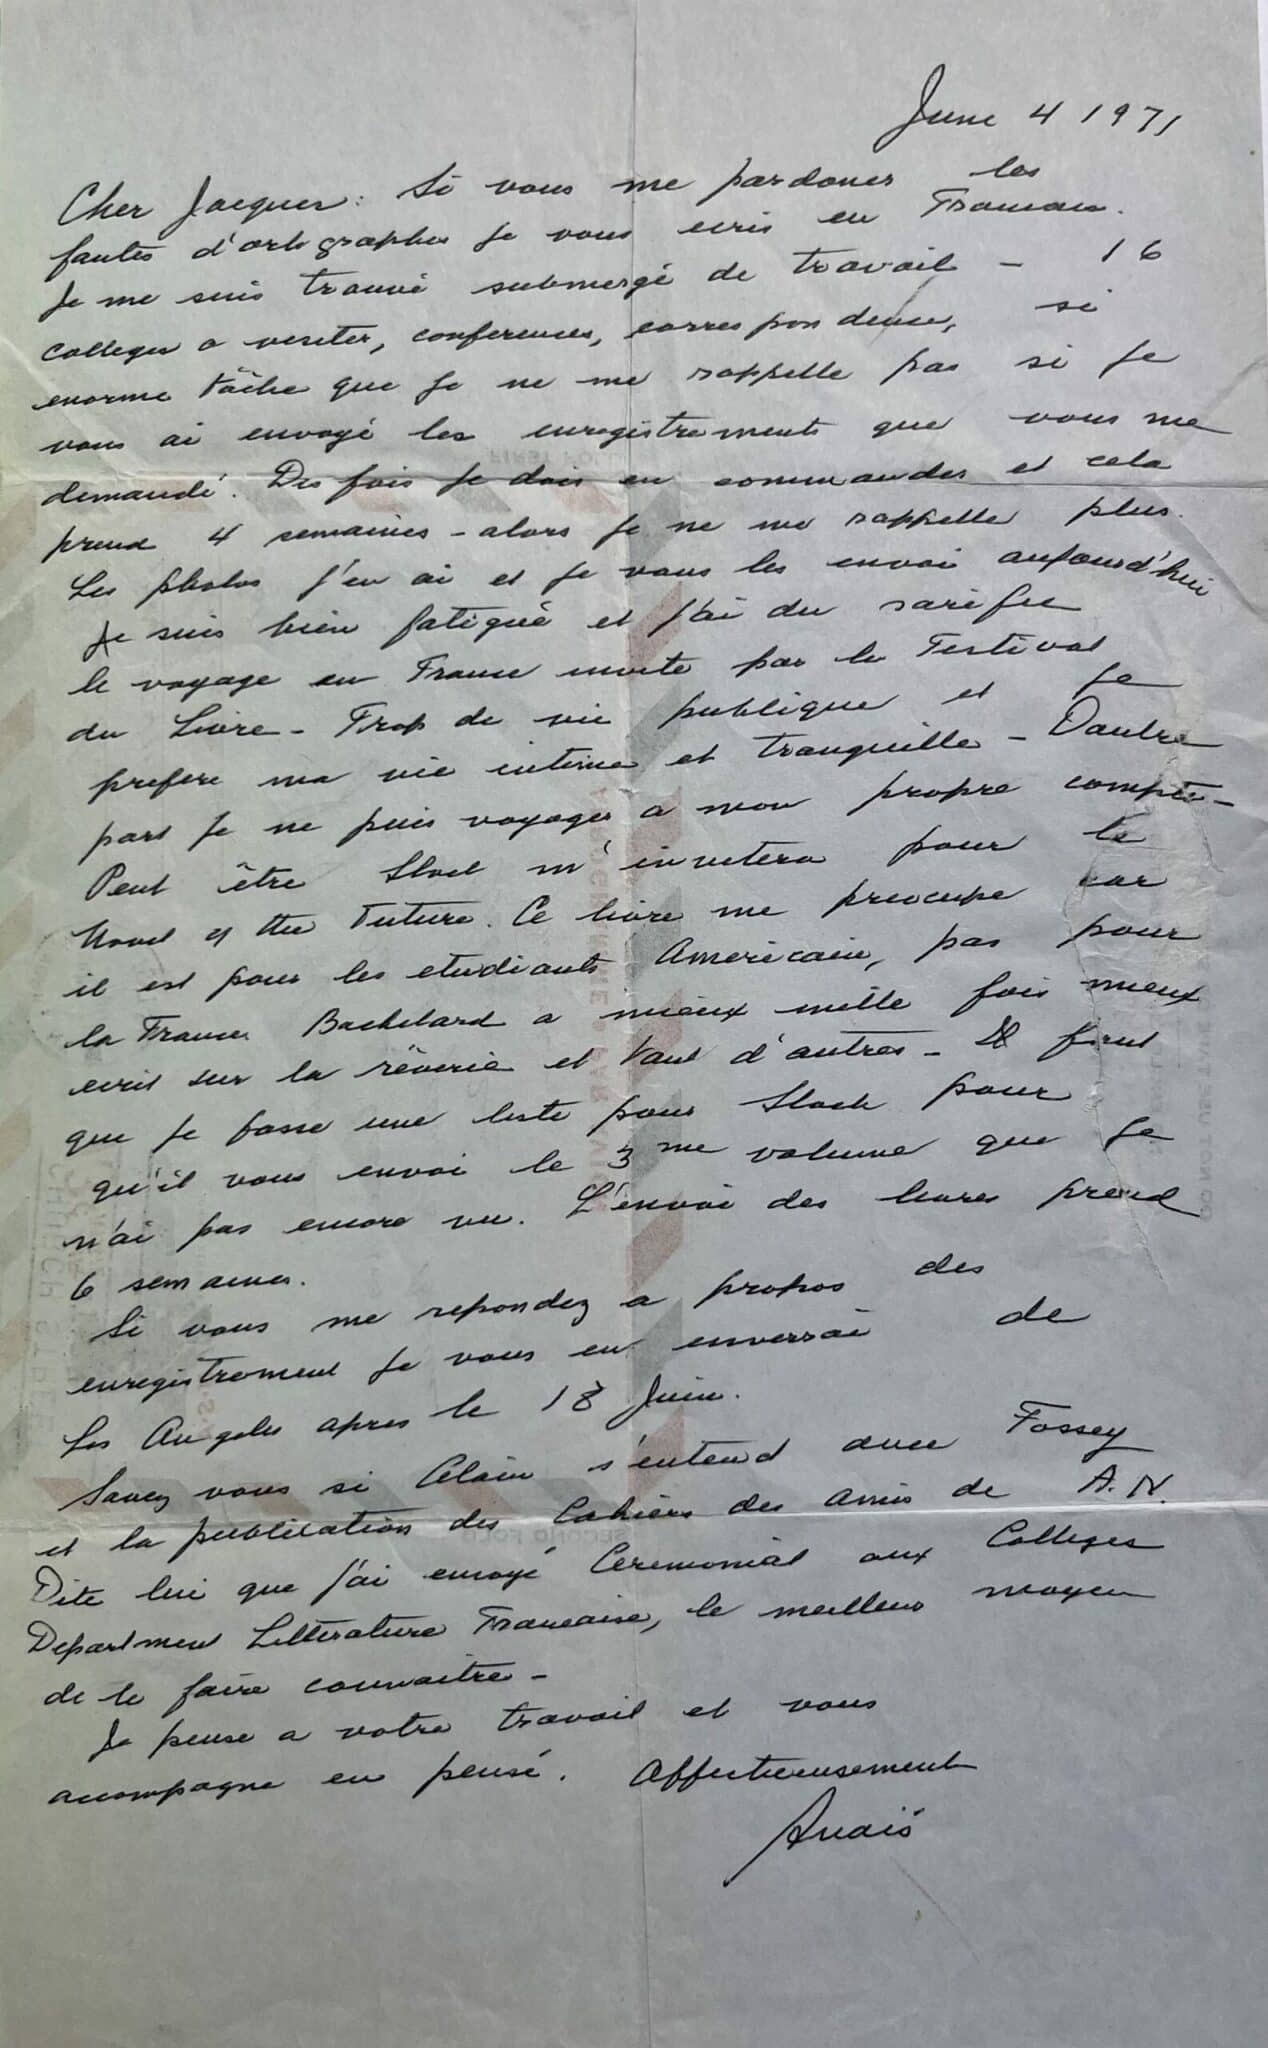 June 4 1971
Cher Jacques: Si vous me pardoner les
fautes d'orthographes je vous ecris en Francais.
Je me suis trouvé submergé de travail – 16
colleges a visiter, conferences, correspondence, si
enorme tâche que je ne me rappelle pas si je
vous ai envoyé les enregistrements que vous me
demandé. Des fois je dois en commander et cela
prend 4 semaines – alors je ne me rappelle plus.
Les photos j'en ai et je vous les envoi aujourd'hui
Je suis bien fatigué et j'ai du
le voyage en France invité par le Festival
du Livre – Trop de vie publique et je
prefere ma vie intime et tranquille – Dautre
part je ne puis voyager a mon propre compte –
Peut être Stock m'invitera pour le
Novel of the Future. Ce livre me preocupe car
il est pour les etudiants Americain, pas pour
la France Bachelard a mieux mille fois mieux
ecrit sur la rêverie et tant d'autres – Il faut
que je fasse une liste pour Stock pour
qu'il vous envoi le 3me volume que je
n'ai pas encore vu. L'envoi des livres prend
6 semaines.
Si vous me repondez a propos des
enregistrement je vous en enverrai de
Los Angeles apres le 18 Juin.
Savez vous si Alain s'entend avec Fossey
et la publication des Cahiers des Amis de A.N.
Dite lui que j'ai envoyé Ceremonial aux Colleges
Department Litterature Francaise, le meilleur moyen
de le faire connaitre –
Je pense a votre travail et vous
accompagne en pensé. Affectueusement
Anaïs
FIRST FOLD
SECOND FOLD